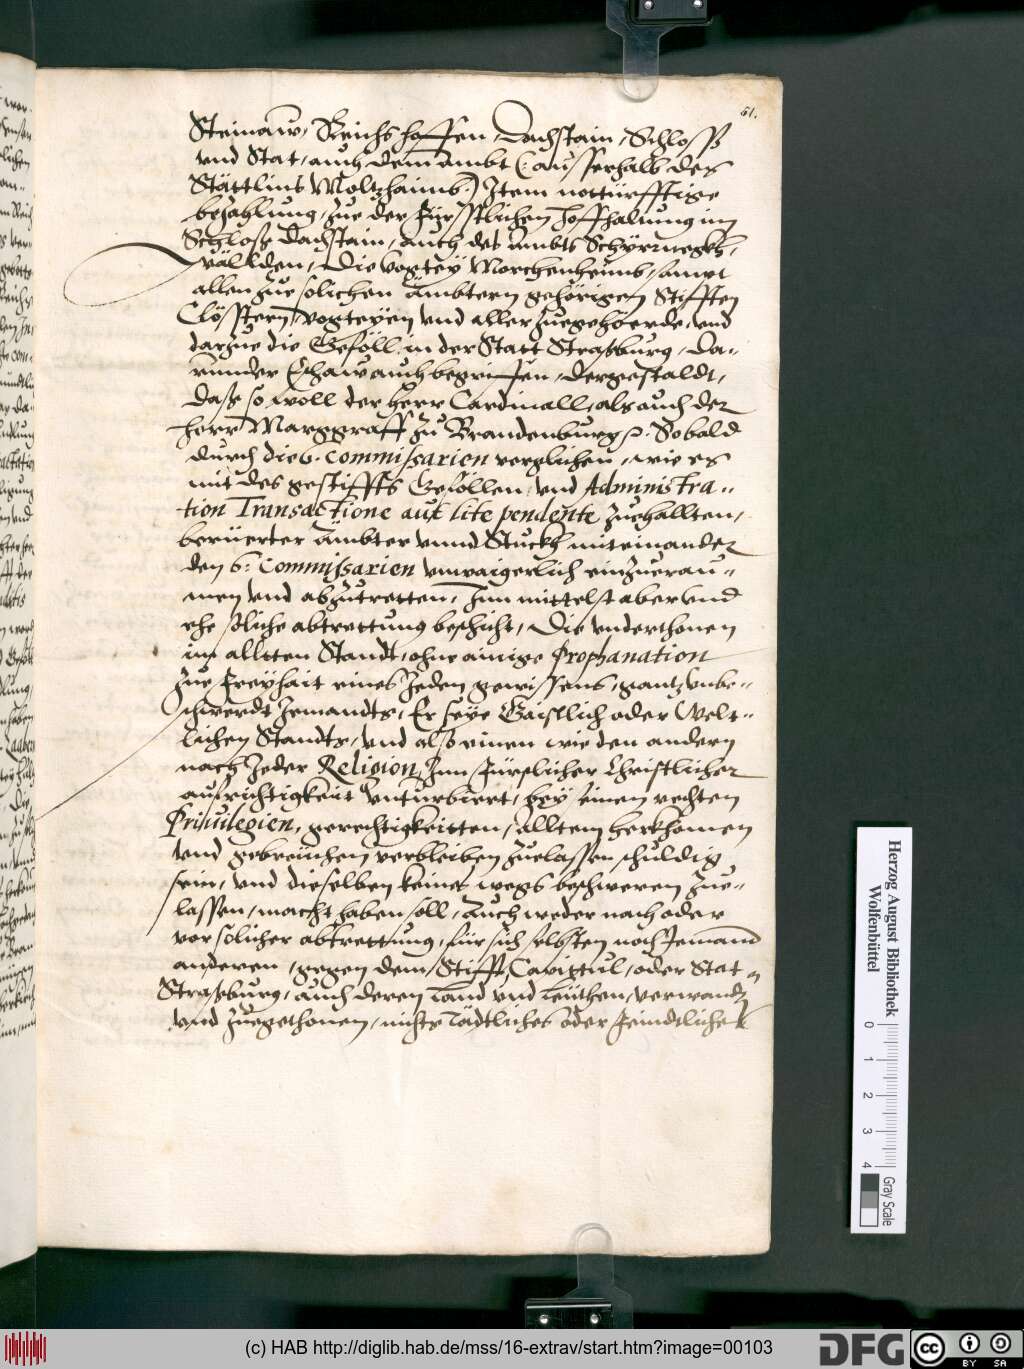 51.
Steinaw, Reichshoffen, Dachstain, Schloß
vnd Stat, auch dem Ambt (: ausserhalb des
Stättlins Moltzhaims :) Item nottürfftige
bezahlung, zue der Fürstlichen Hoffhaltung im
Schloß Dachstain, auch des Ambts
wällden, Die Vogtey Morchenheims, sampt
allen zue solichen Ämbtern gehörigen Stifften
Clösstern, vogteyen vnd aller zuegehöerde, vnd
darzue die Geföll in der Statt Straßburg, da-
runder auch begriffen, dergestaldt,
daß so woll der Herr Cardinall, als auch der
Herr Marggraff zu Brandenburg. Sobald
durch die 6. Commissarien verglichen, wie es
mit des gestiffts Geföllen, vnd Administra-
tion Transactione aut lite pendente zuehallten,
berüerter Ämbter vnnd Stuckh miteinander
den 6: Commissarien vnwaigerlich einzuerau-
men vnd abzutretten, Inn mittelst aber vnd
ehe soliche abtrettung beschicht, Die vnderthonen
im allten Standt, ohne ainige Prophanation
zue Freyhait eines Jeden gewissens, gantz vnbe-
schwerdt Jemandts, Er seye Gaistlich oder Welt-
lichen Standts, vnd also einen wie den andern
nach Jeder Religion, Inn Fürstlicher Christlicher
aufrichtigkeit vnturbiert, bey seinen rechten
Priuilegien, gerechtigkeitten, alltem herkhomen
vnd gebreüchen verbleiben zuelassen schuldig
sein, vnd dieselben keines wegs beschweren zue-
lassen, macht haben soll, Auch weder nach oder
vor solicher abtrettung, für sich selbsten noch Jemand
anderen, gegen dem Stifft, Capittul, oder Stat
Straßburg, auch deren Land vnd Leüthen, verwandt
vnd zuegethonen, nichts Tädtliches oder Feindtliches
Herzog August Bibliothek
Wolfenbüttel
0 1 2 3 4
Gray Scale
(c) HAB http://diglib.hab.de/mss/16-extrav/start.htm?image=00103
DFG
cc BY SA